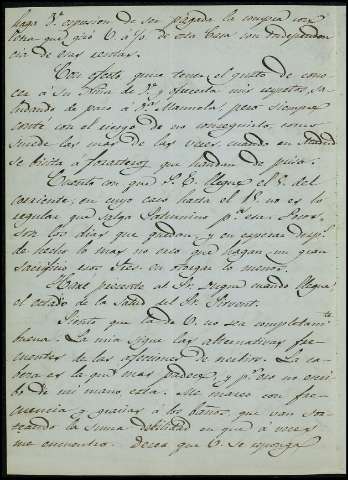 haga Vd. expresion de ser pagada la compra con
letra que giró V. á f/. de esa Casa con independen
cia de sus rentas.
Con efecto quise tener el gusto de cono
cer á su Niña de V. y ofrecerla mis respetos, sa
ludando de paso á Dª. Manuela; pero siempre
conté con el riesgo de no conseguirlo, como
sucede las mas de las veces, cuando en Madrid
se visita a forasteros que handan de prisa.
Cuento con que S. E. llegue el 8. del
corriente, en cuyo caso hasta el 15. no es lo
regular que salga Saturnino pª. esa. Pocos
son los dias que quedan, y en esperar despª. de
hecho lo mas no creo que hagan un gran
sacrificio esos Sres. en otorgar lo menos.
Haré presente al Sr. Duque cuando llegue,
el estado de la Salud del Sr. Prevent.
Siento que la de V. no sea completamte.
buena. La mia sigue las alternativas fre
cuentes de las afecciones de nervios. La ca
beza es la que mas padece y pr. eso no escri
bo de mi mano esta. Me mareo con fre
cuencia y gracias á los baños, que van sos
teniendo la suma debilidad en que á veces
me encuentro. Desea que V. se reponga